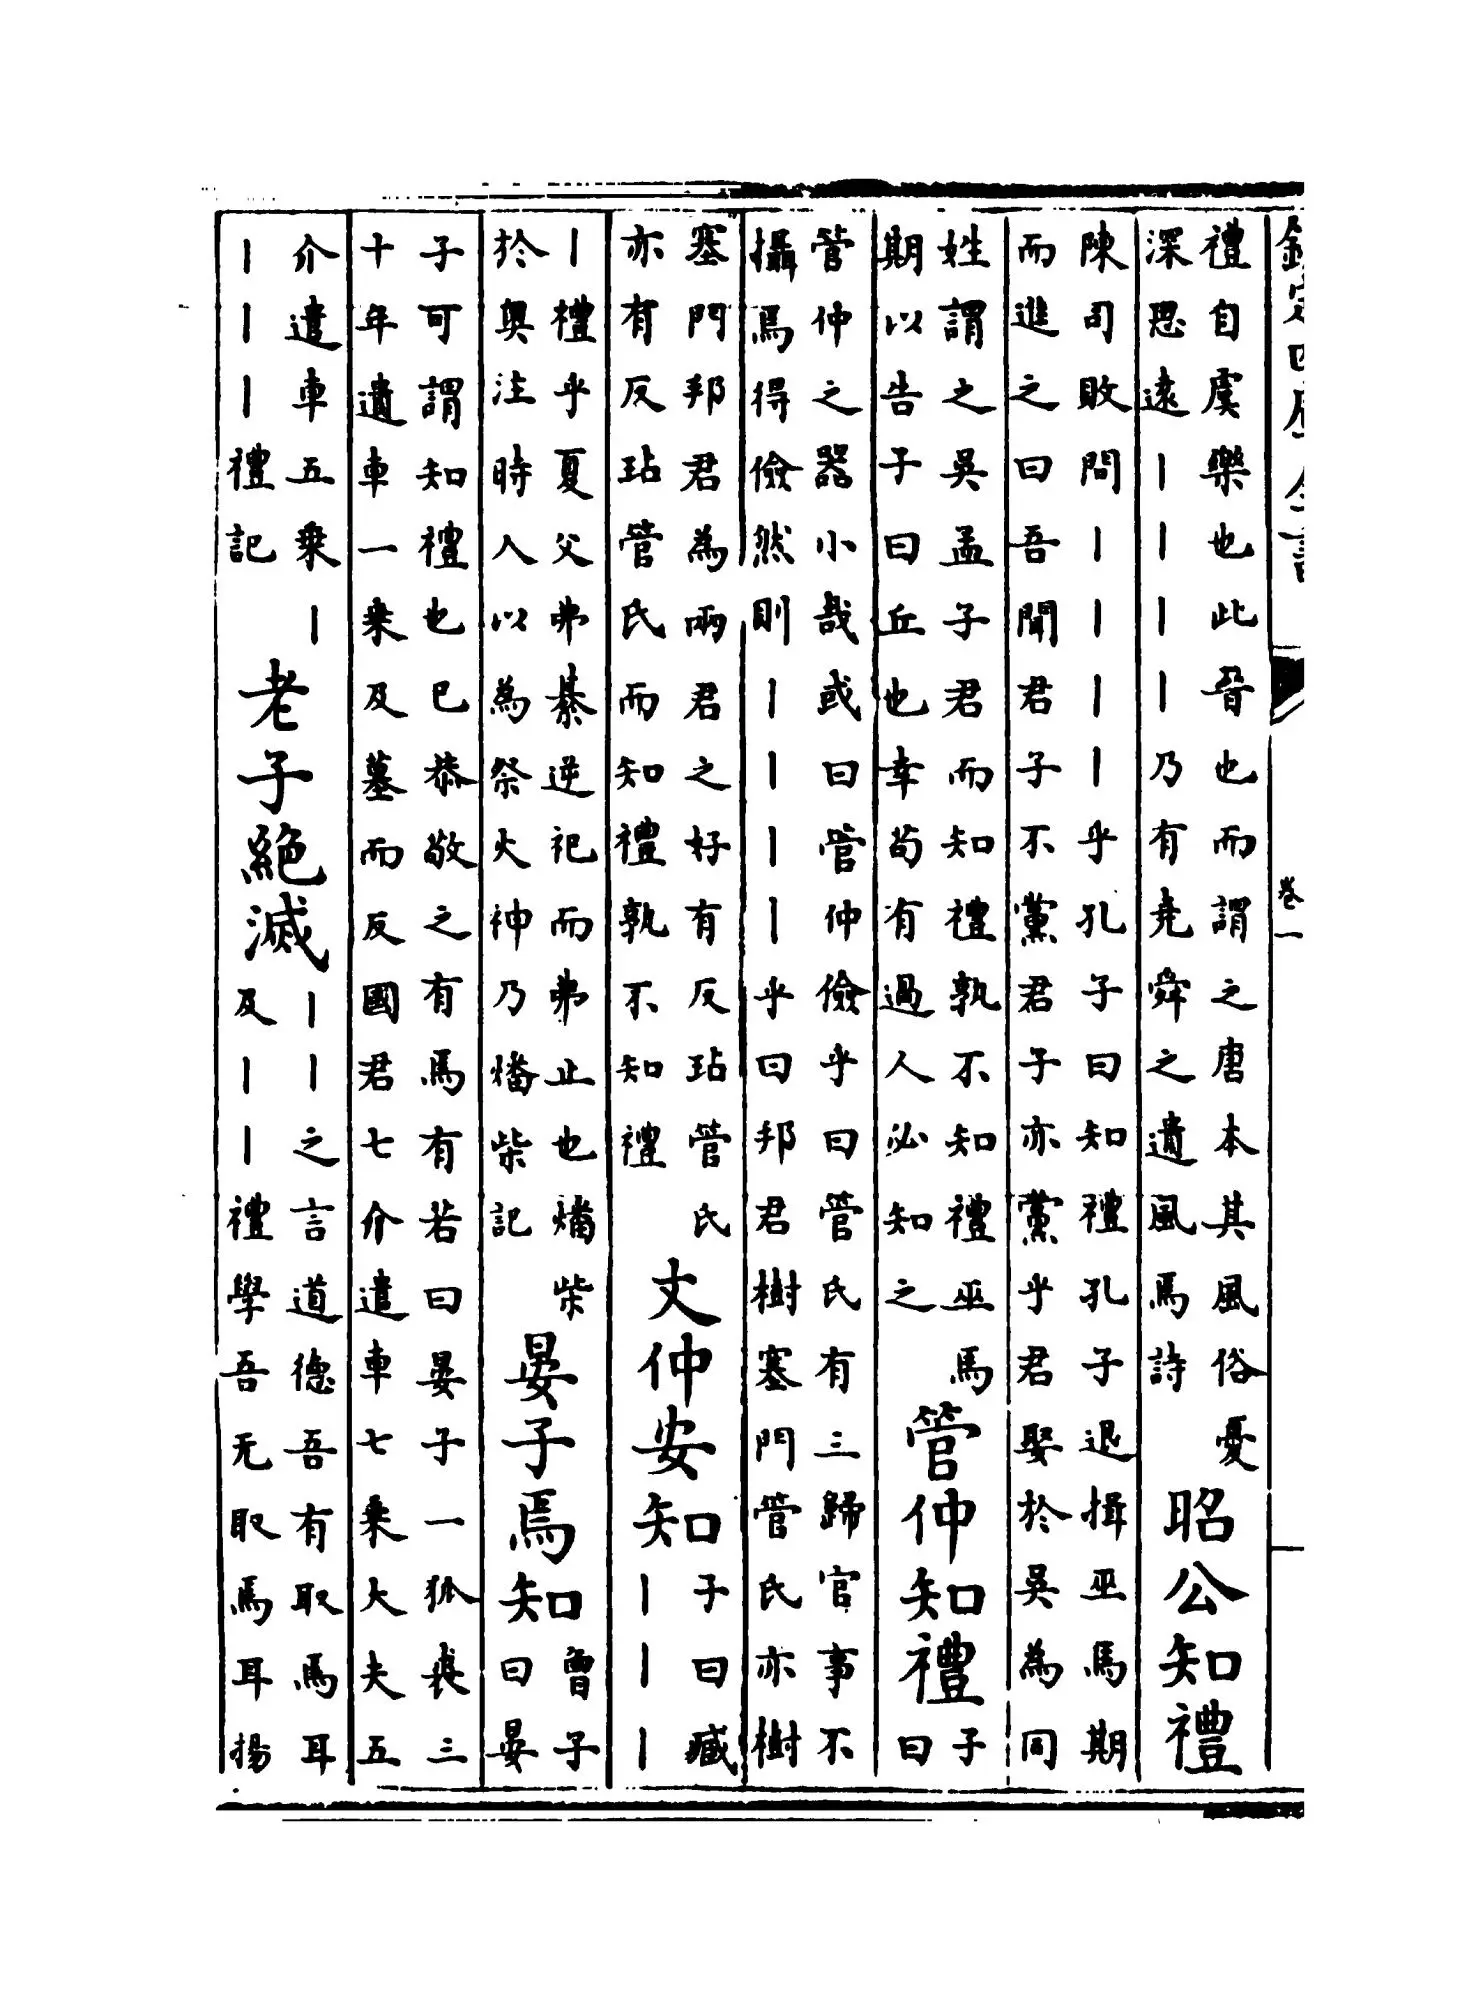 欽定四庫全書
卷一
禮自虞樂也此晉也而謂之唐本其風俗憂
深思遠丨丨丨丨乃有堯舜之遺風焉詩
昭公知禮
陳司敗問丨丨丨丨乎孔子曰知禮孔子退揖巫馬期
而進之曰吾聞君子不黨君子亦黨乎君娶於吳為同
姓謂之吳孟子君而知禮孰不知禮巫馬
期以告子曰丘也幸茍有過人必知之
管仲知禮
子
曰
管仲之器小哉或曰管仲儉乎曰管氏有三歸官事不
攝焉得儉然則丨丨丨丨乎曰邦君樹塞門管氏亦樹
塞門邦君為兩君之好有反玷管氏
亦有反玷管氏而知禮孰不知禮
文仲安知
子曰臧
丨丨丨
丨禮乎夏父弗綦逆祀而弗止也燔柴
於奧注時人以為祭火神乃燔柴記
晏子焉知
曾子
曰晏
子可謂知禮也已恭敬之有焉有若曰晏子一狐裘三
十年遣車一乘及墓而反國君七介遣車七乘大夫五
介遣車五乘丨
丨丨丨禮記
老子絕滅
丨丨之言道德吾有取焉耳
及丨丨禮學吾无取焉耳揚